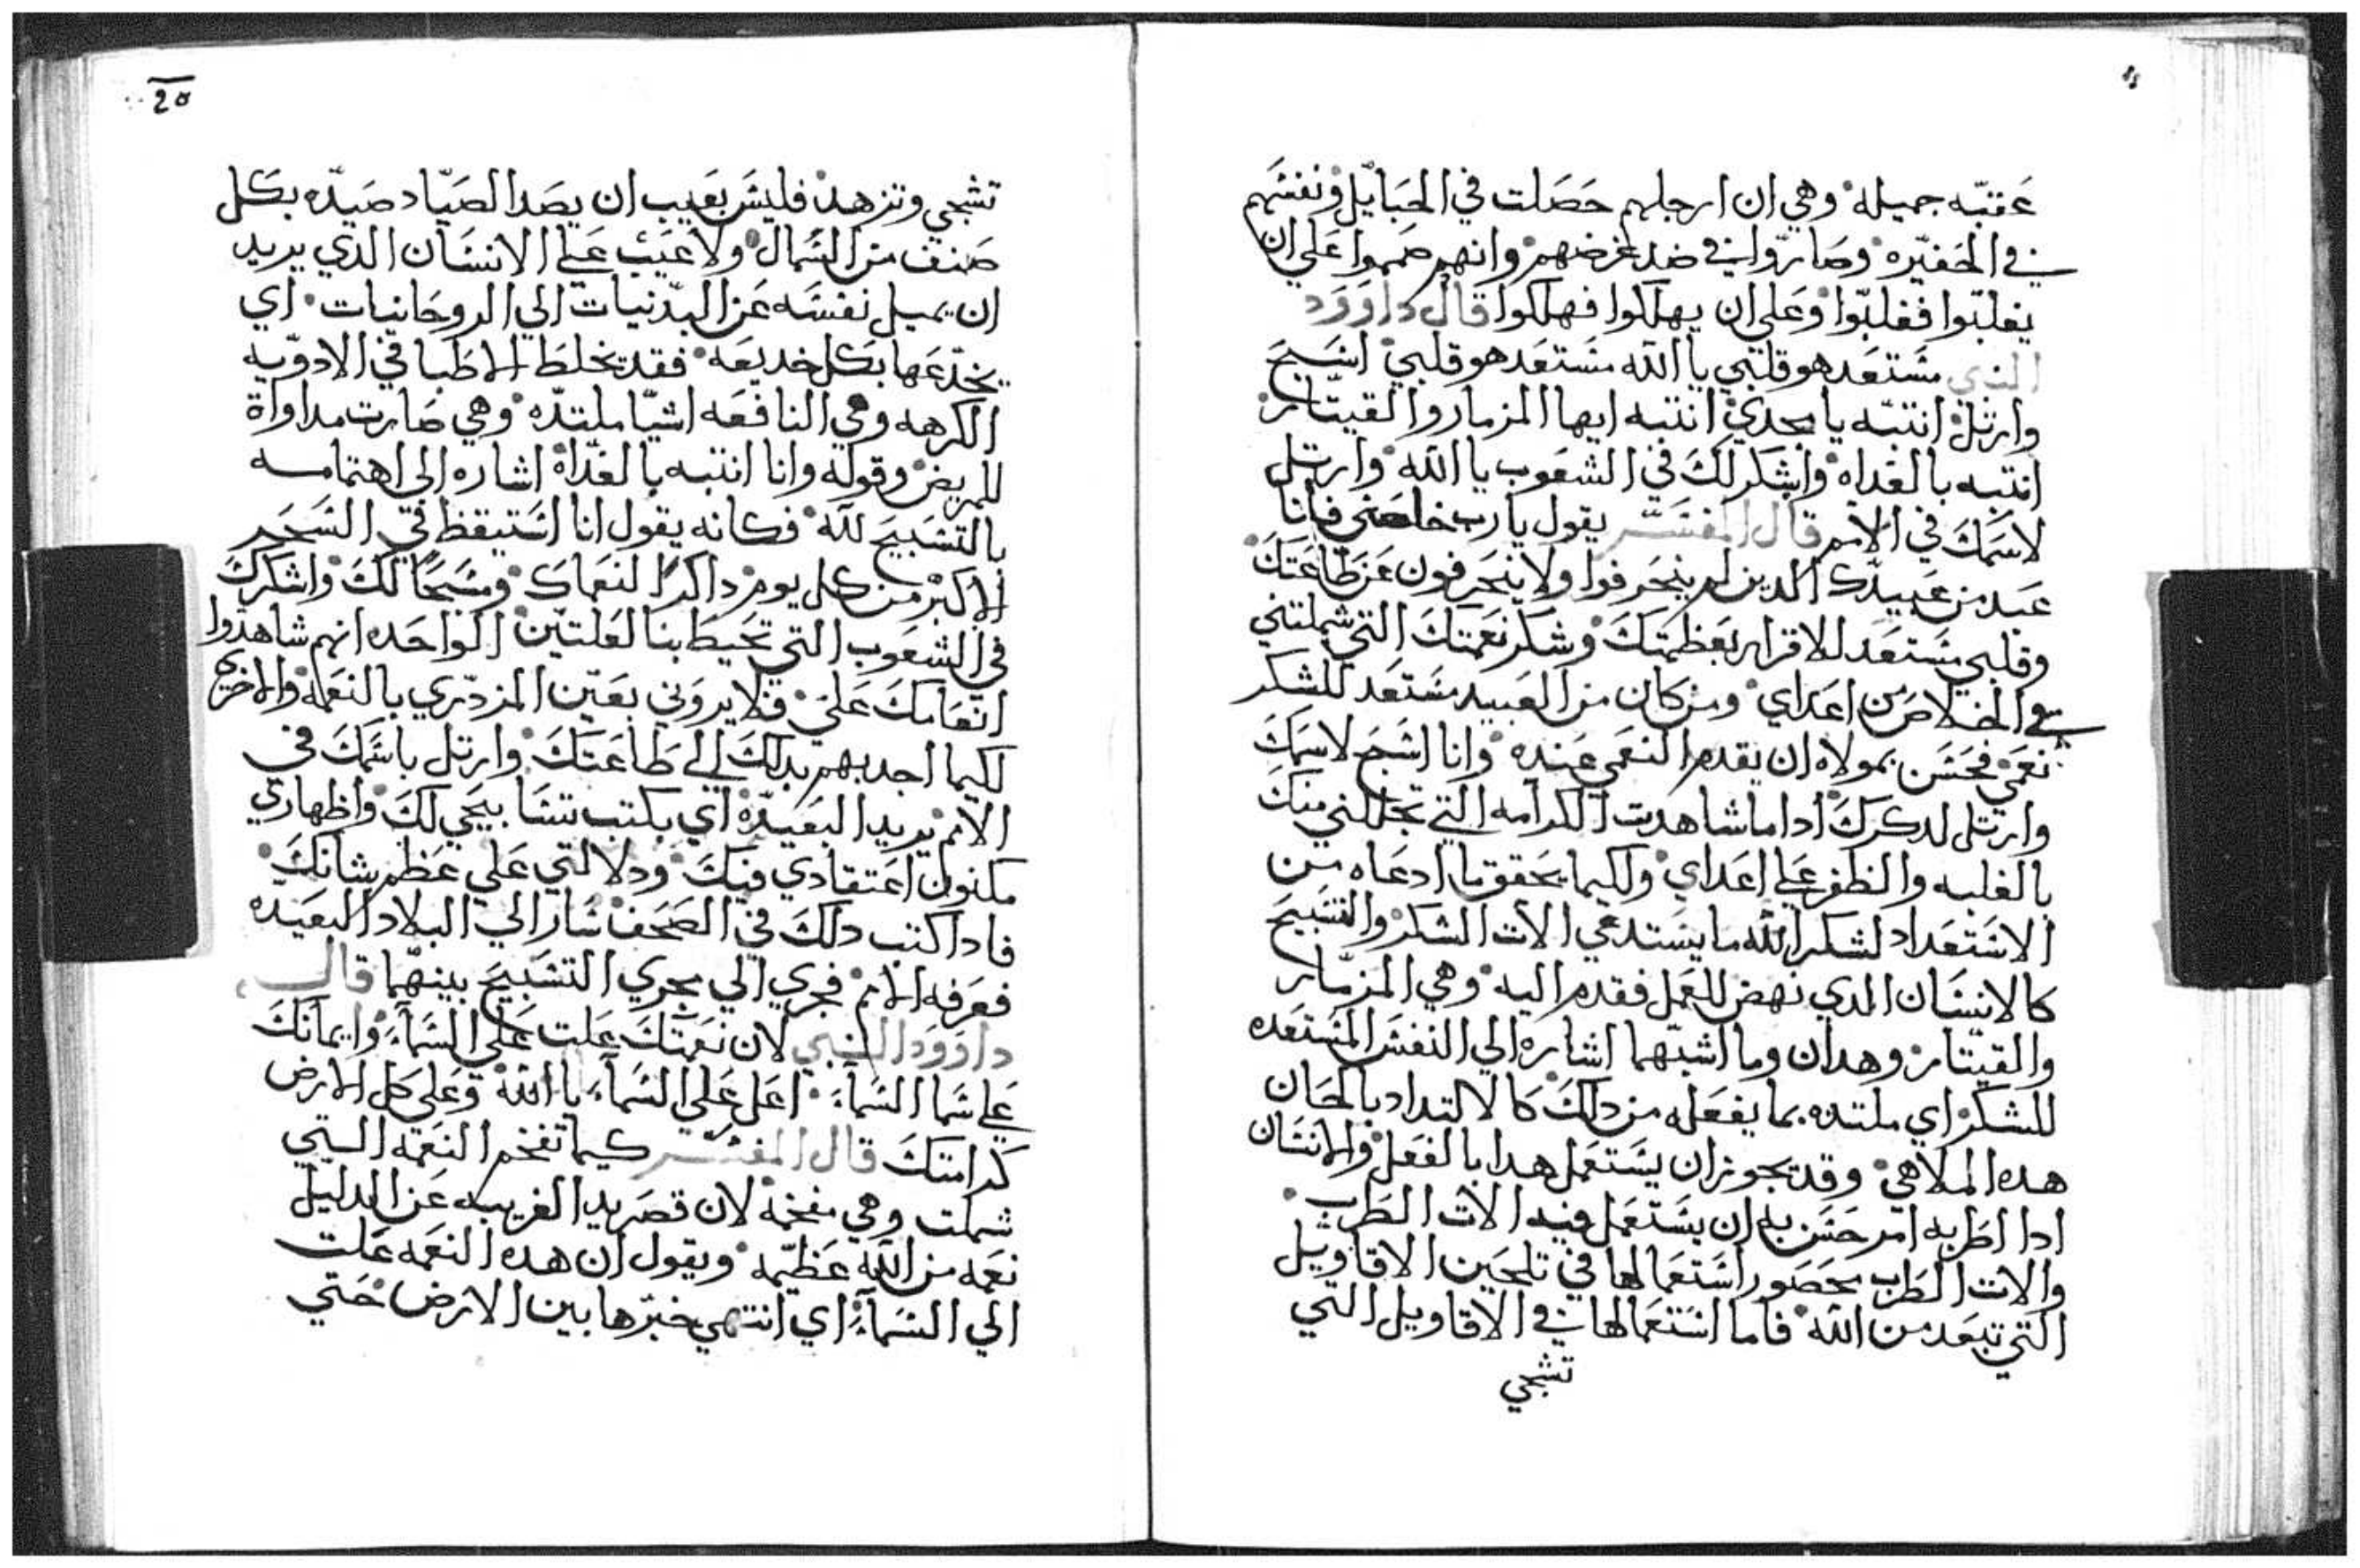 عَقبّه جميله وهي ان ارجلهم حَصَلت في الحَبايل ونفسَهم
في الحَفيره وصَاروا في ضد غرضهم وانهم صَمموا عَلي ان
يغلبوا فغلبوا وعَلي ان يهلكوا فهلكوا قال داوود
النبي مسَتعَد هو قلبي يا الله مسَتعَد هو قلبي اسَبح
وارتل انتبه يا مجدي انتبه ايها المزمار والقيتار
انتبه بالغداه واشكر لكَ في الشعوب يا الله وارتل
لاسَمكَ في الامم قال المفسَّر يقول يا رب خلصَني فانا
عَبد من عَبيدك الدين لم ينحَرفوا ولا ينحَرفون عَن طَاعَتكَ
وقلبي مسَتعَد للاقرار بعَظمتكَ وشكر نعَمتكَ التي شملتني
في الخلاصَ من اعَداي ومن كان من العَبيد مسَتعَد للشكر
نعَمي فحَسَن بمولاه ان يقدم النعَمي عَنده وانا اسَبح لاسَمكَ
وارتل لدكركَ ادا ما شاهدت الكرامه التي تجللني منكَ
بالغلبه والظفر عَلي اعَداي ولكيما يحَقق ما ادعَاه من
الاسَتعَداد لشكر الله ما يسَتدعَي الات الشكر والتسَبيح
كالانسَان الدي نهض للعَمل فقدم اليه وهي المزمار
والقيتار وهدان وما اشبهما اشاره الي النفسَ المسَتعَده
للشكر اي ملتده بما يفعَله من دلكَ كالالتداد بالحَان
هده الملاهي وقد يجوز ان يسَتعَمل هدا بالفعَل والانسَان
ادا اطَربه امر حَسَن به ان يسَتعَمل فيه الات الطَرب
والات الطَرب محَصَور اسَتعَمالها في تلحَين الاقاويل
التي تبعَد من الله فاما اسَتعَمالها في الاقاويل التي
تشجي
20
تشجي وتزهد فليسَ بعَيب ان يصَد الصَياد صَيده بكل
صَنف من الشمال ولا عَيب عَلي الانسَان الدي يريد
ان يميل نفسَه عَن البدنيات الي الروحَانيات اي
يخدعَها بكل خديعَه فقد يخلطَ الاطَبا في الادويه
الكرهه وهي النافعَه اشيا ملتده وهي صَارت مداواة
للمريض وقوله وانا انتبه بالغداة اشاره الي اهتمامه
بالتسَبيح لله فكانه يقول انا اسَتيقظ في السَحَر
الاكبر من كل يوم داكرًا لنعَماك ومسَبحًا لكَ واشكركَ
في الشعَوب التي تحَيطَ بنا لعَلتين الواحَده انهم شاهدوا
انعَامكَ عَلي فلا يروني بعَين المزدري بالنعَمه والاخري
لكيما اجدبهم بدلكَ الي طَاعَتكَ وارتل باسَمكَ في
الامم يريد البعَيده اي بكتب تسَابيحَي لكَ واظهاري
مكنون اعَتقادي فيكَ ودلالتي عَلي عَظم شانكَ
فادا كتب دلكَ في الصَحَف سَار الي البلاد البعَيده
فعَرفه الامم فجري الي مجري التسَبيح بينهما قال
داوود النبي لان نعَمتكَ عَلت عَلي السَمآء وايمانكَ
عَلي سَما السَمآء اعَل عَلي السَمآء يا الله وعَلي كل الارض
كرامتكَ قال المفسَّر كيما تفخم النعَمه التي
شملت وهي مفخمه لان قصَر يد الغريبه عَن الدليل
نعَمه من الله عَظيمه ويقول ان هده النعَمه عَلت
الي السَمآء اي انتهي خبرها بين الارض حَتي